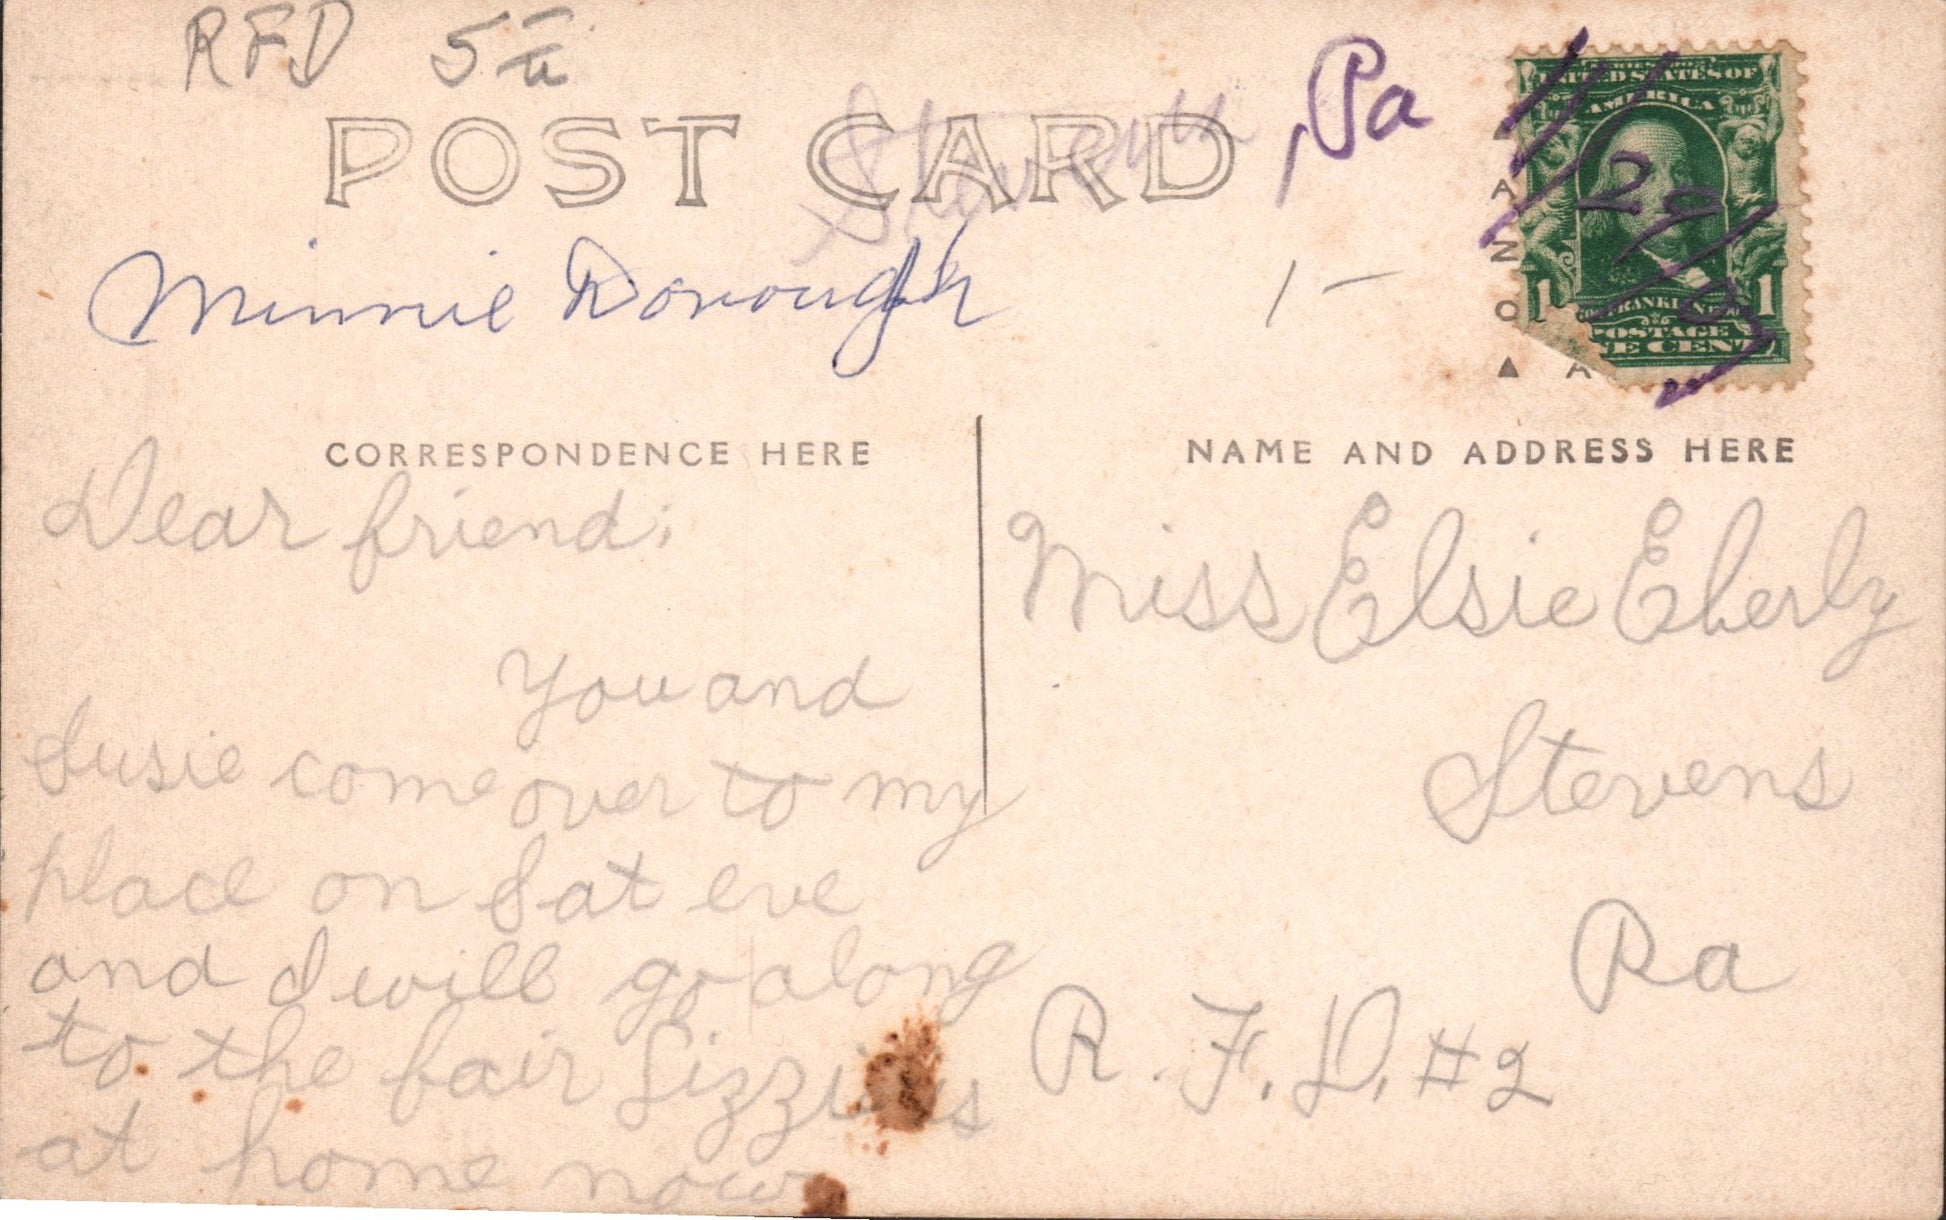 RFD 5
POST CARD
, Pa
Minnie
1 -
SERIES 1902
UNITED STATES OF
AMERICA
1 FRANKLIN 1
POSTAGE
CENT
11/29/07
▲ A Z O ▲ A
CORRESPONDENCE HERE
NAME AND ADDRESS HERE
Dear friend;
You and
Susie come over to my
place on Sat eve
and I will go along
to the fair Lizzie is
at home now
Miss Elsie Eberly
Stevens
Pa
R. F. D. #2